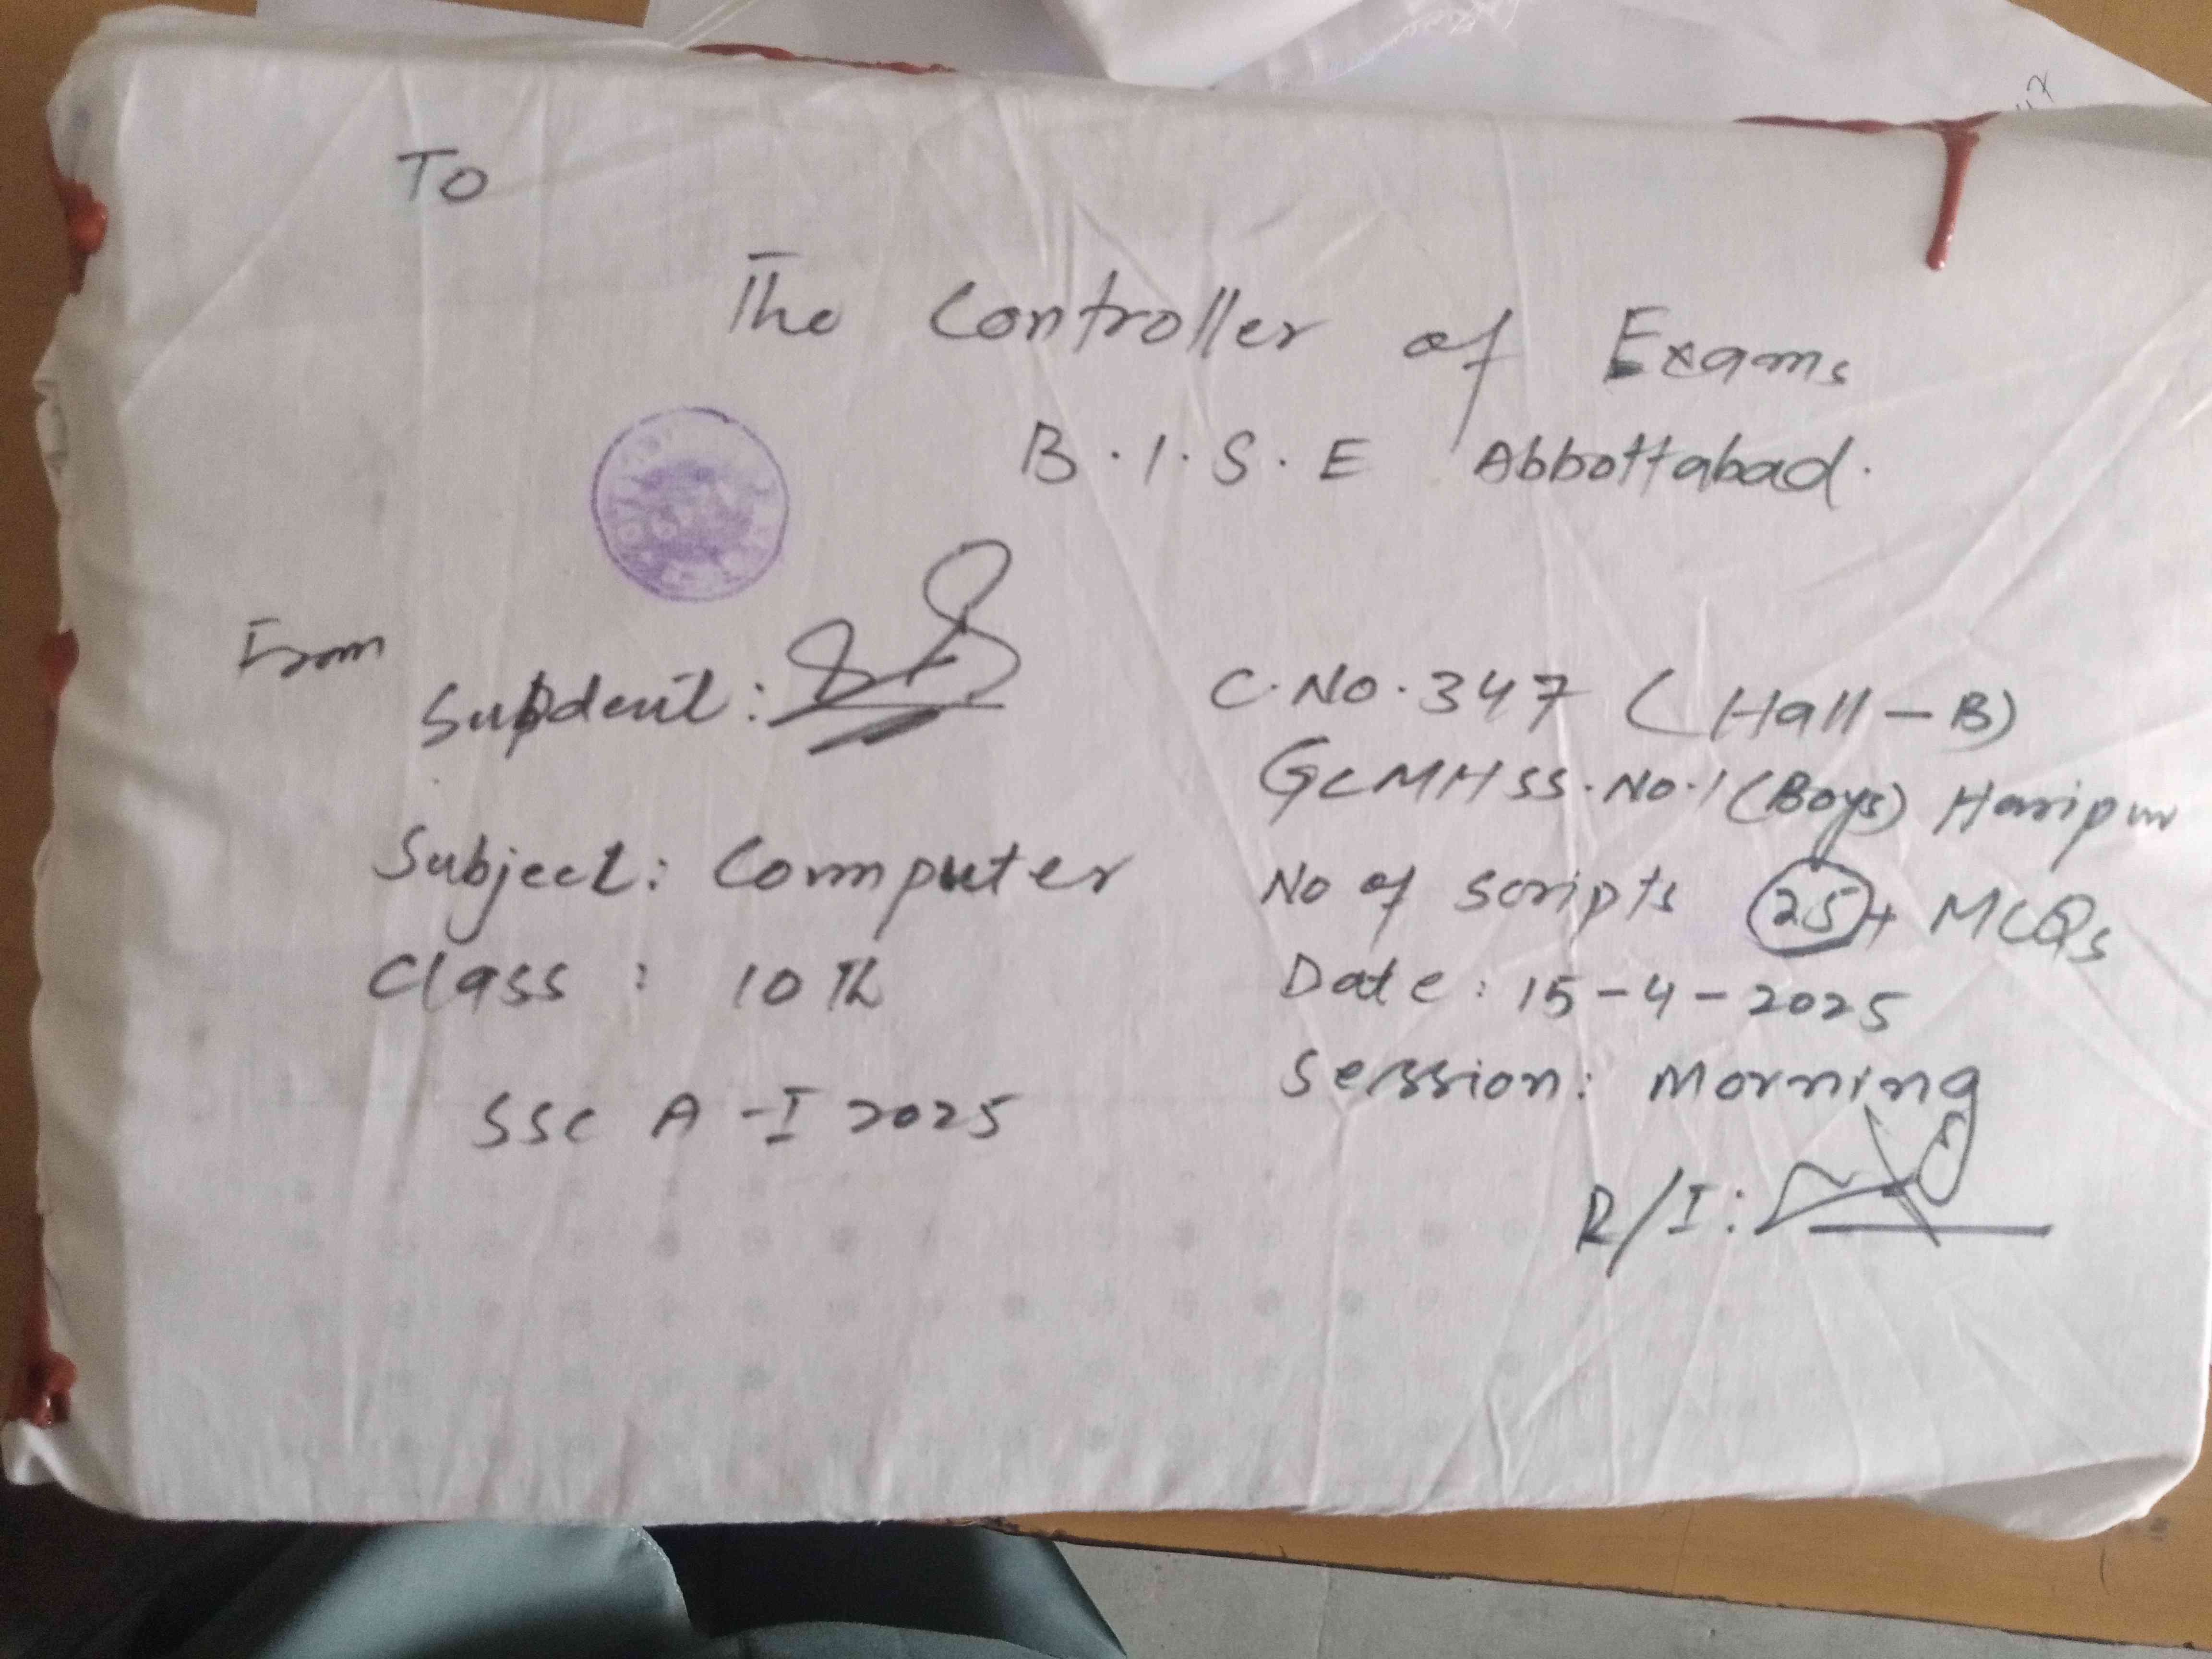 To
The Controller of Exams
B.I.S.E Abbottabad.
From
Supdent:
C.No.347 (Hall-B)
GCMHSS.No.1 (Boys) Haripur
Subject: Computer
No of scripts 25 + MCQs
Class : 10th
Date: 15-4-2025
Session: Morning
SSC A-I 2025
R/I: